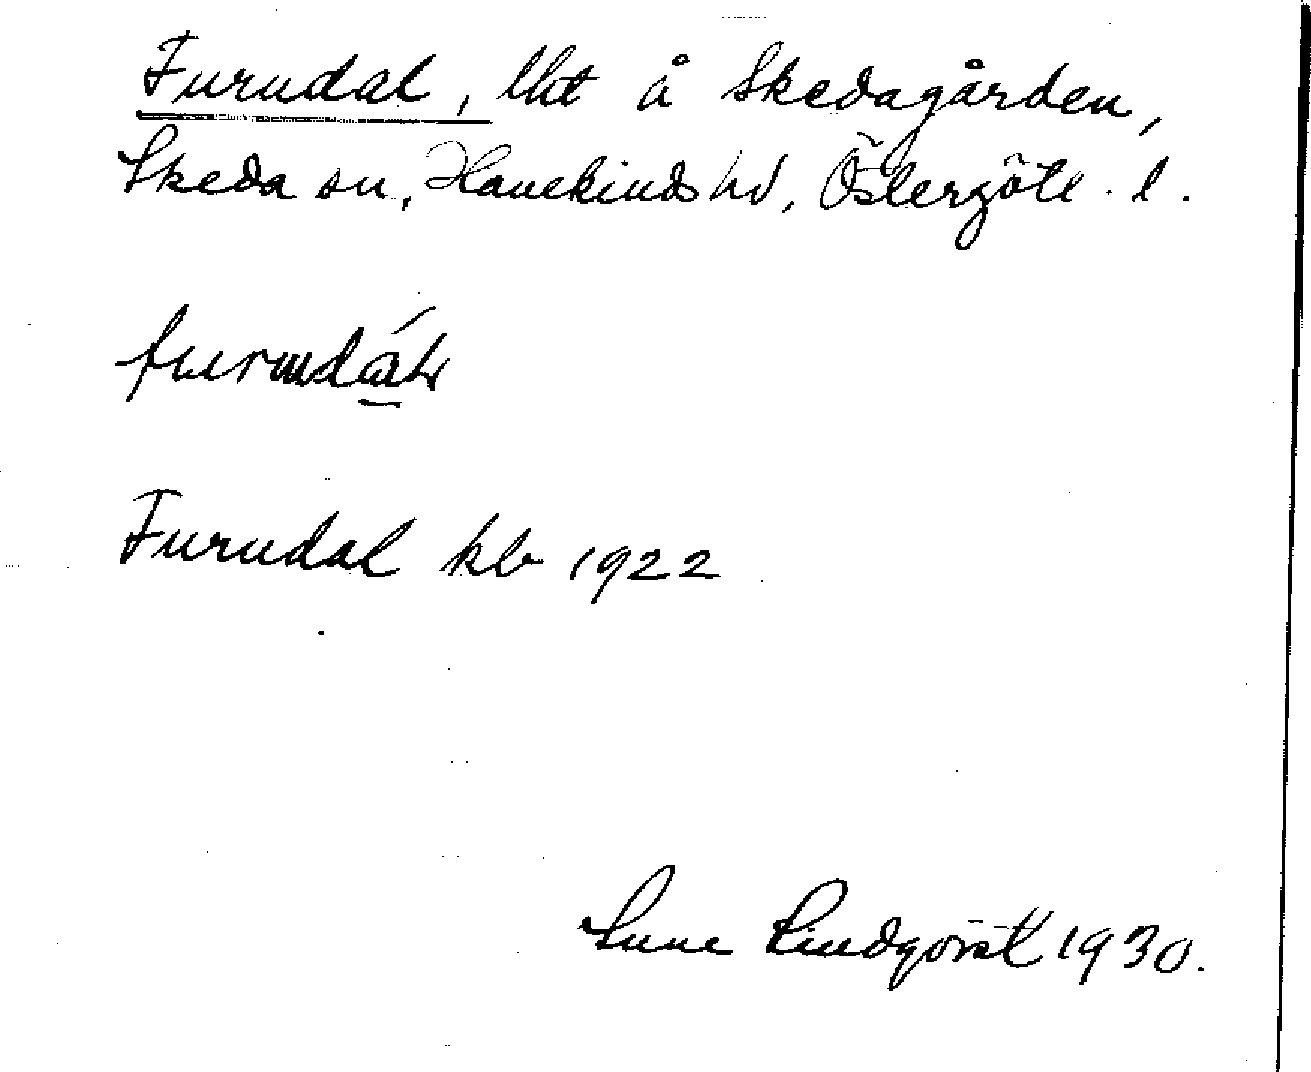 Furudal, lht å Skedagården,
Skeda sn, Hanekinds hd, Östergötl. l.
Furudal kb 1922
Sune Lindqvist 1930.